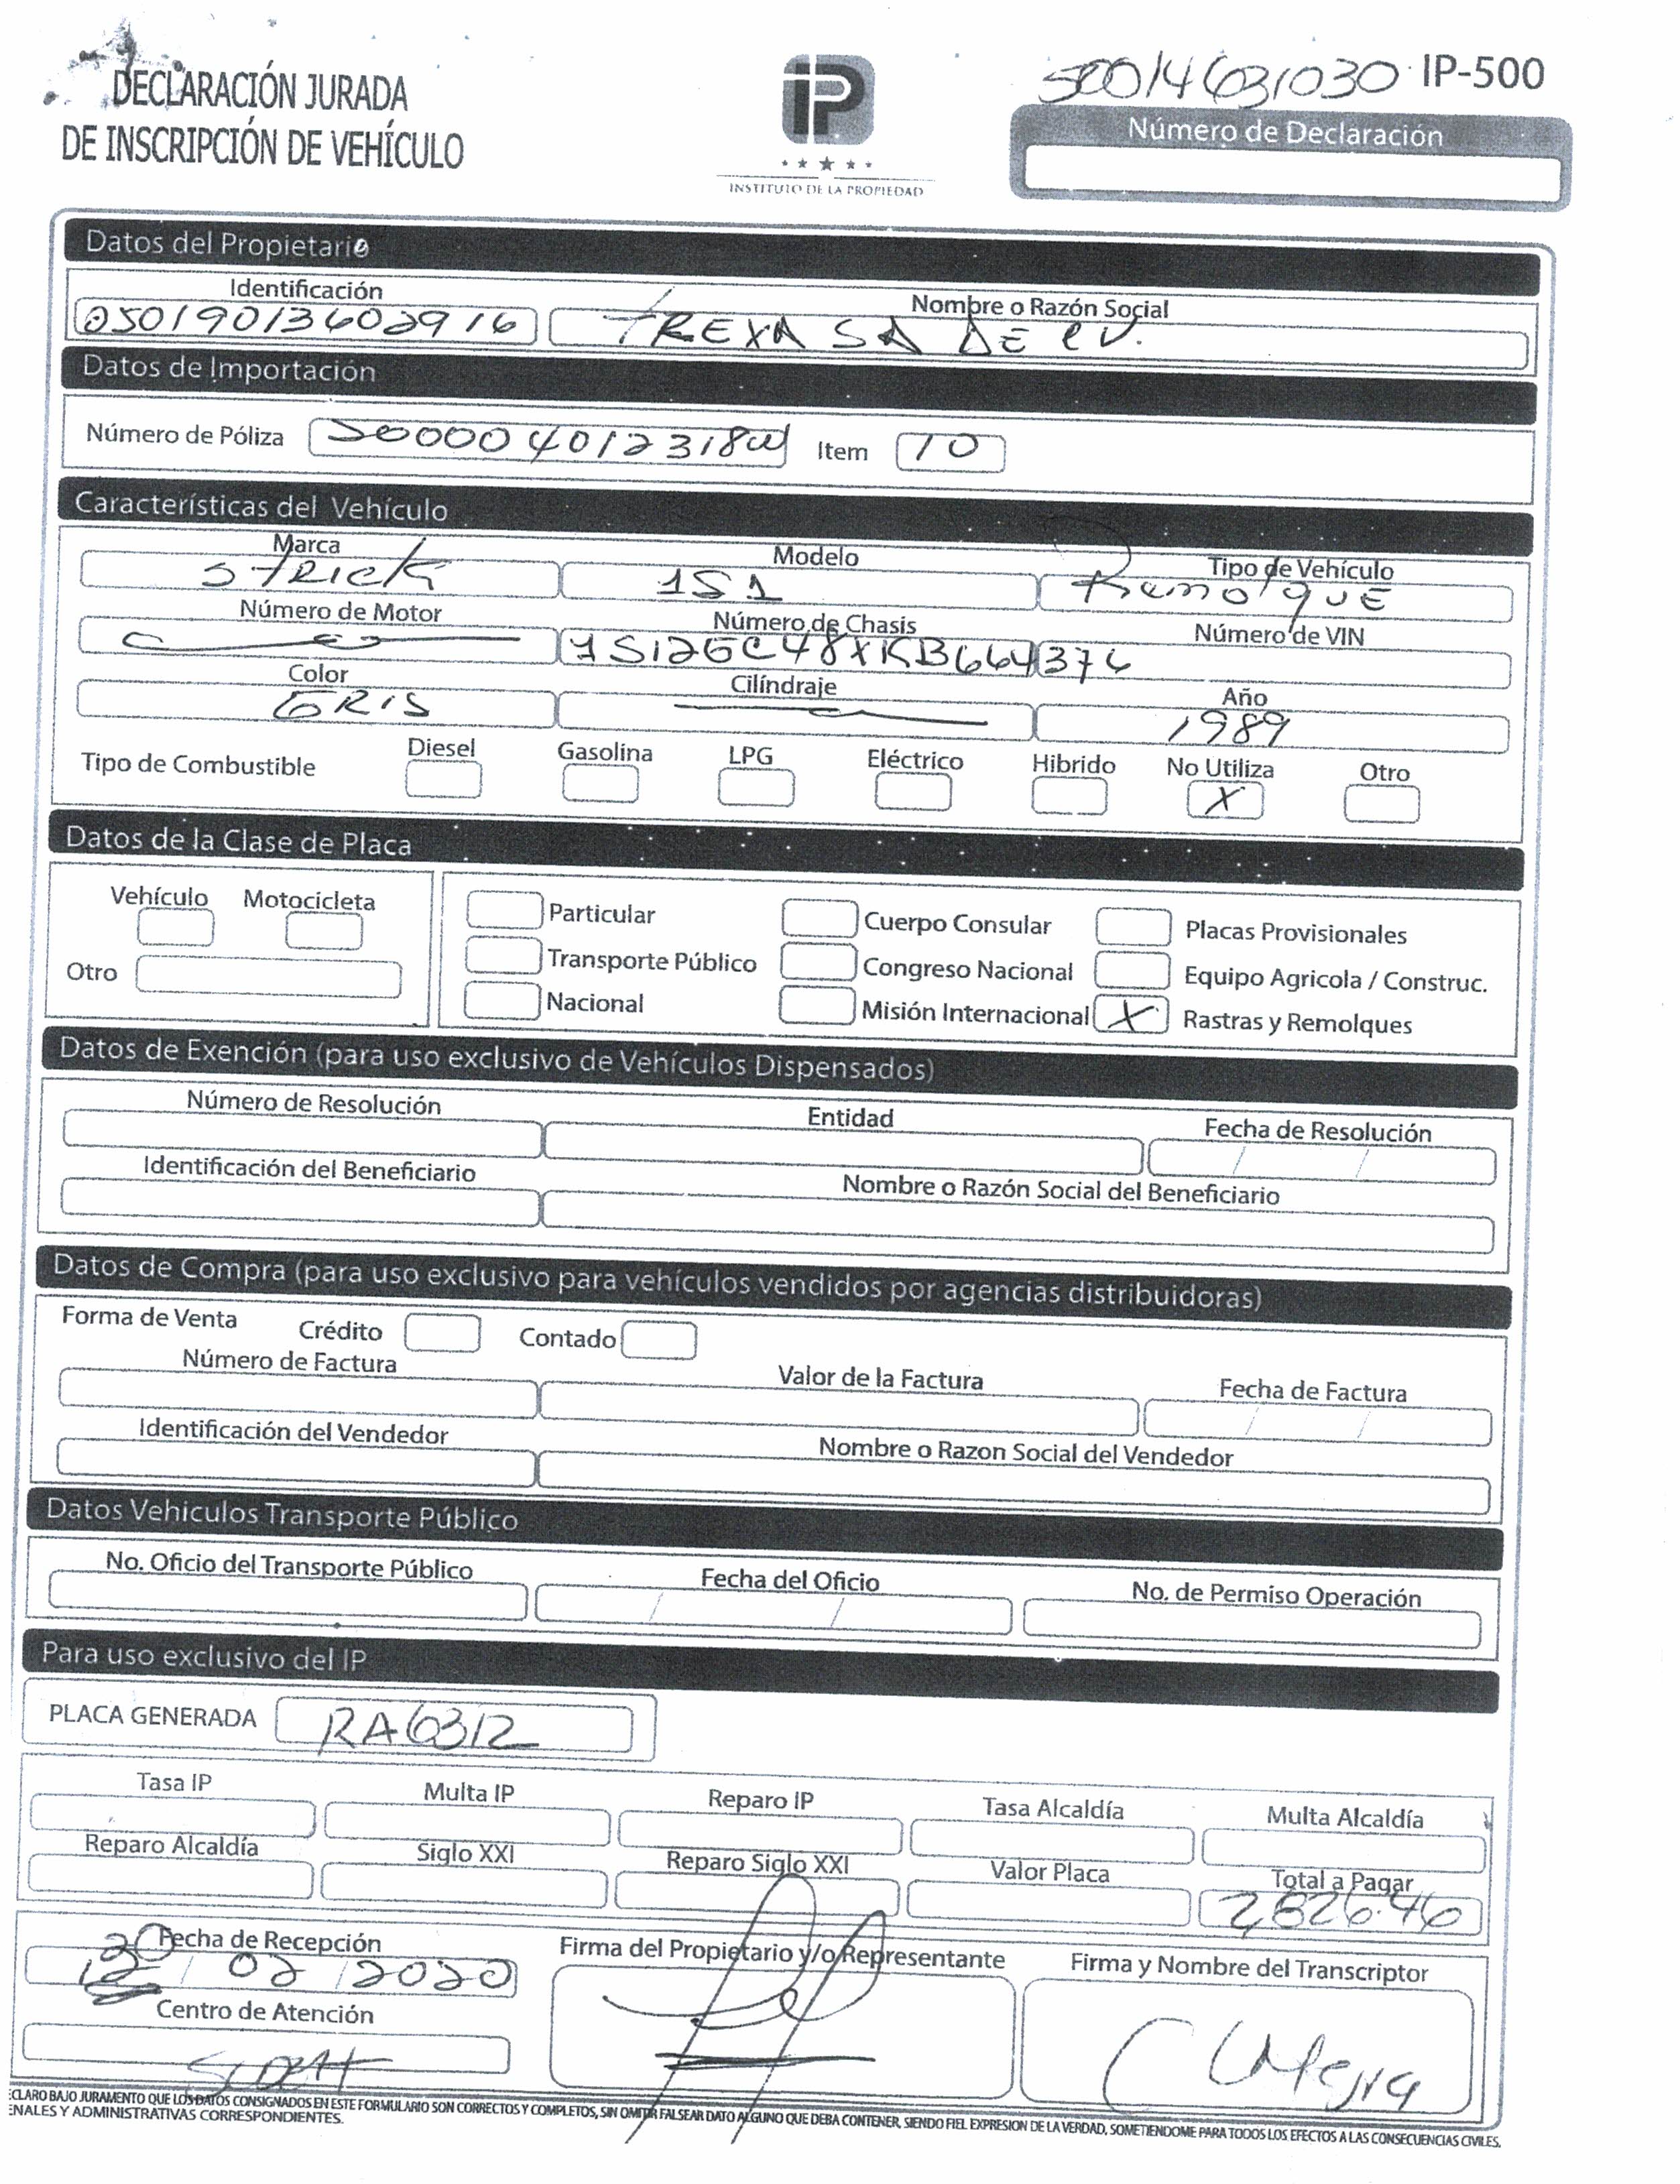 DECLARACIÓN JURADA
DE INSCRIPCIÓN DE VEHÍCULO
IP
INSTITUTO DE LA PROPIEDAD
50014631030 IP-500
Número de Declaración
Datos del Propietario
Identificación Nombre o Razón Social
05019013602916 TREXA SA DE CV.
Datos de Importación
Número de Póliza Item 10
Características del Vehículo
Marca Modelo Tipo de Vehículo
STRICK 1S1 RemolquE
Número de Motor Número de Chasis Número de VIN
Color Cilíndraje Año
GRIS 1989
Tipo de Combustible Diesel Gasolina LPG Eléctrico Hibrido No Utiliza Otro
X
Datos de la Clase de Placa
Vehículo Motocicleta
Otro
Particular Cuerpo Consular Placas Provisionales
Transporte Público Congreso Nacional Equipo Agricola / Construc.
Nacional Misión Internacional X Rastras y Remolques
Datos de Exención (para uso exclusivo de Vehículos Dispensados)
Número de Resolución Entidad Fecha de Resolución
/ /
Identificación del Beneficiario Nombre o Razón Social del Beneficiario
Datos de Compra (para uso exclusivo para vehículos vendidos por agencias distribuidoras)
Forma de Venta Crédito Contado
Número de Factura Valor de la Factura Fecha de Factura
/ /
Identificación del Vendedor Nombre o Razon Social del Vendedor
Datos Vehiculos Transporte Público
No. Oficio del Transporte Público Fecha del Oficio No. de Permiso Operación
/ /
Para uso exclusivo del IP
PLACA GENERADA RA6312
Tasa IP Multa IP Reparo IP Tasa Alcaldía Multa Alcaldía
Reparo Alcaldía Siglo XXI Reparo Siglo XXI Valor Placa Total a Pagar
2,826.46
Fecha de Recepción Firma del Propietario y/o Representante Firma y Nombre del Transcriptor
20 / 02 / 2020
Centro de Atención
ECLARO BAJO JURAMENTO QUE LOS DATOS CONSIGNADOS EN ESTE FORMULARIO SON CORRECTOS Y COMPLETOS, SIN OMITIR FALSEAR DATO ALGUNO QUE DEBA CONTENER, SIENDO FIEL EXPRESION DE LA VERDAD, SOMETIENDOME PARA TODOS LOS EFECTOS A LAS CONSECUENCIAS CIVILES,
ENALES Y ADMINISTRATIVAS CORRESPONDIENTES.